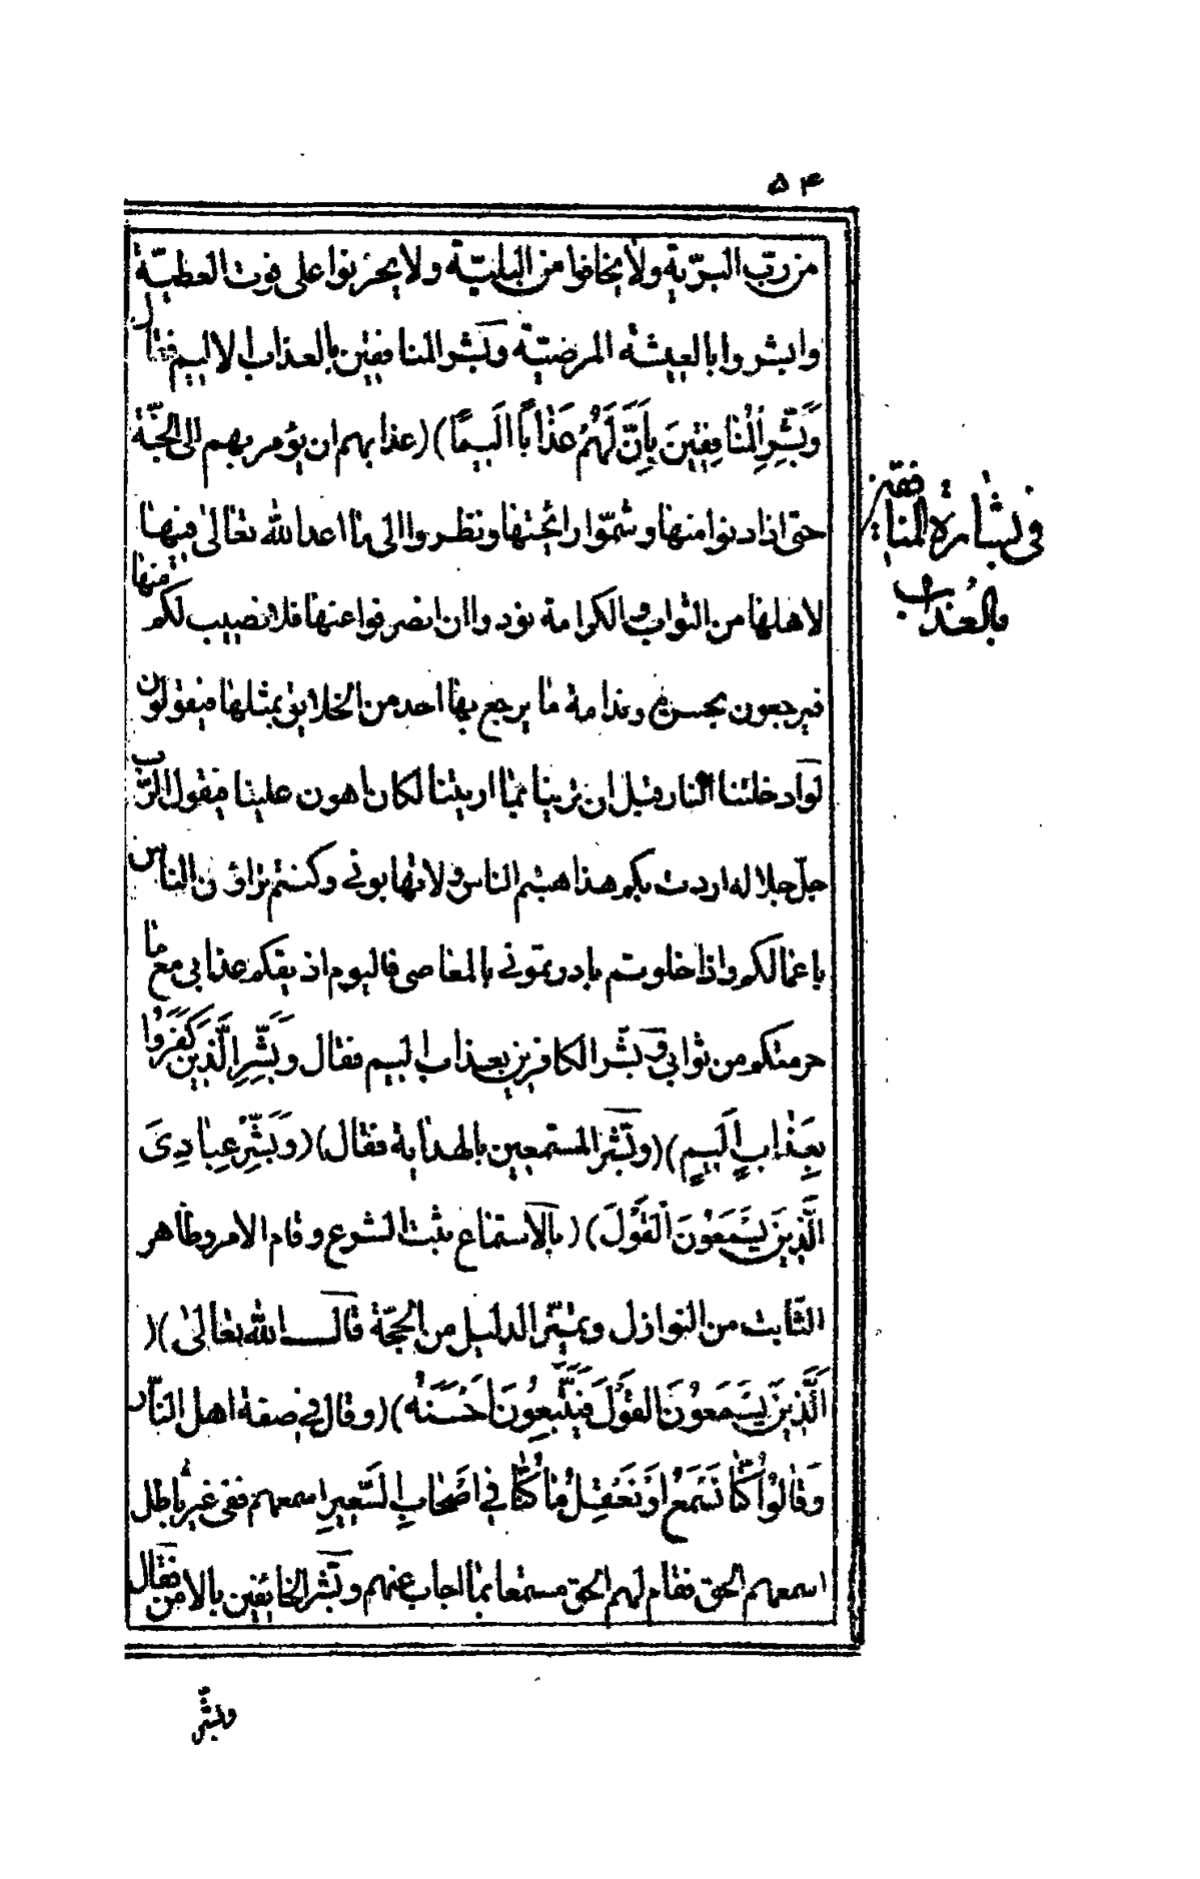 ۵۴
من ربّ البريّة ولا يخافوا من البليّة ولا يحزنوا على فوت العطيّة
وابشروا بالعيشة المرضيّة وبشر المنافقين بالعذاب الاليم فقال
وَبَشِّرِ الْمُنَافِقِينَ بِاَنَّ لَهُمْ عَذَابًا اَلِيمًا)(عذابهم ان يؤمر بهم الى الجنّة
حتى اذا دنوا منها وشمّوا رائحتها ونظروا الى ما اعد الله تعالى فيها
لاهلها من الثواب والكرامة نودوا ان انصرفوا عنها فلا نصيب لكم منها
فيرجعون بحسرة وندامة ما يرجع بها احد من الخلايق بمثلها فيقولون
لو ادخلتنا النار قبل ان ترينا ممّا اريتنا لكان اهون علينا فيقول الربّ
جلّ جلاله اردت بكم هذا هبتم الناس ولا تهابونى وكنتم تراؤن الناس
باعمالكم واذا خلوتم بادرتمونى بالمعاصى فاليوم اذيقكم عذابى مع ما
حرمتكم من ثوابى وبشّر الكافرين بعذاب اليم فقال وَبَشِّرِ الَّذِينَ كَفَرُوا
بِعَذَابٍ اَلِيمٍ)(وبَشّر المستمعين بالهداية فقال)(وَبَشِّرْ عِبَادِىَ
الَّذِينَ يَسْتَمِعُونَ الْقَوْلَ)(بالاستماع يثبت الشرع وقام الامر وظاهر
الثّابت من النوازل ويميّز الدليل من الحجّة قال الله تعالى)(
اَلَّذِينَ يَسْتَمِعُونَ الْقَوْلَ فَيَتَّبِعُونَ اَحْسَنَهُ)(وقال فى صفة اهل النّار
وَقَالُوا لَوْ كُنَّا نَسْمَعُ اَوْ نَعْقِلُ مَا كُنَّا فِى اَصْحَابِ السَّعِيرِ اسمعهم ففى غير باطل
اسمعهم الحق فقام لهم الحق مستمعا بما اجاب عنهم وبَشّر الخائفين بالامن فقال
وبشّر
فى بشارة المنافقين
بالعذاب